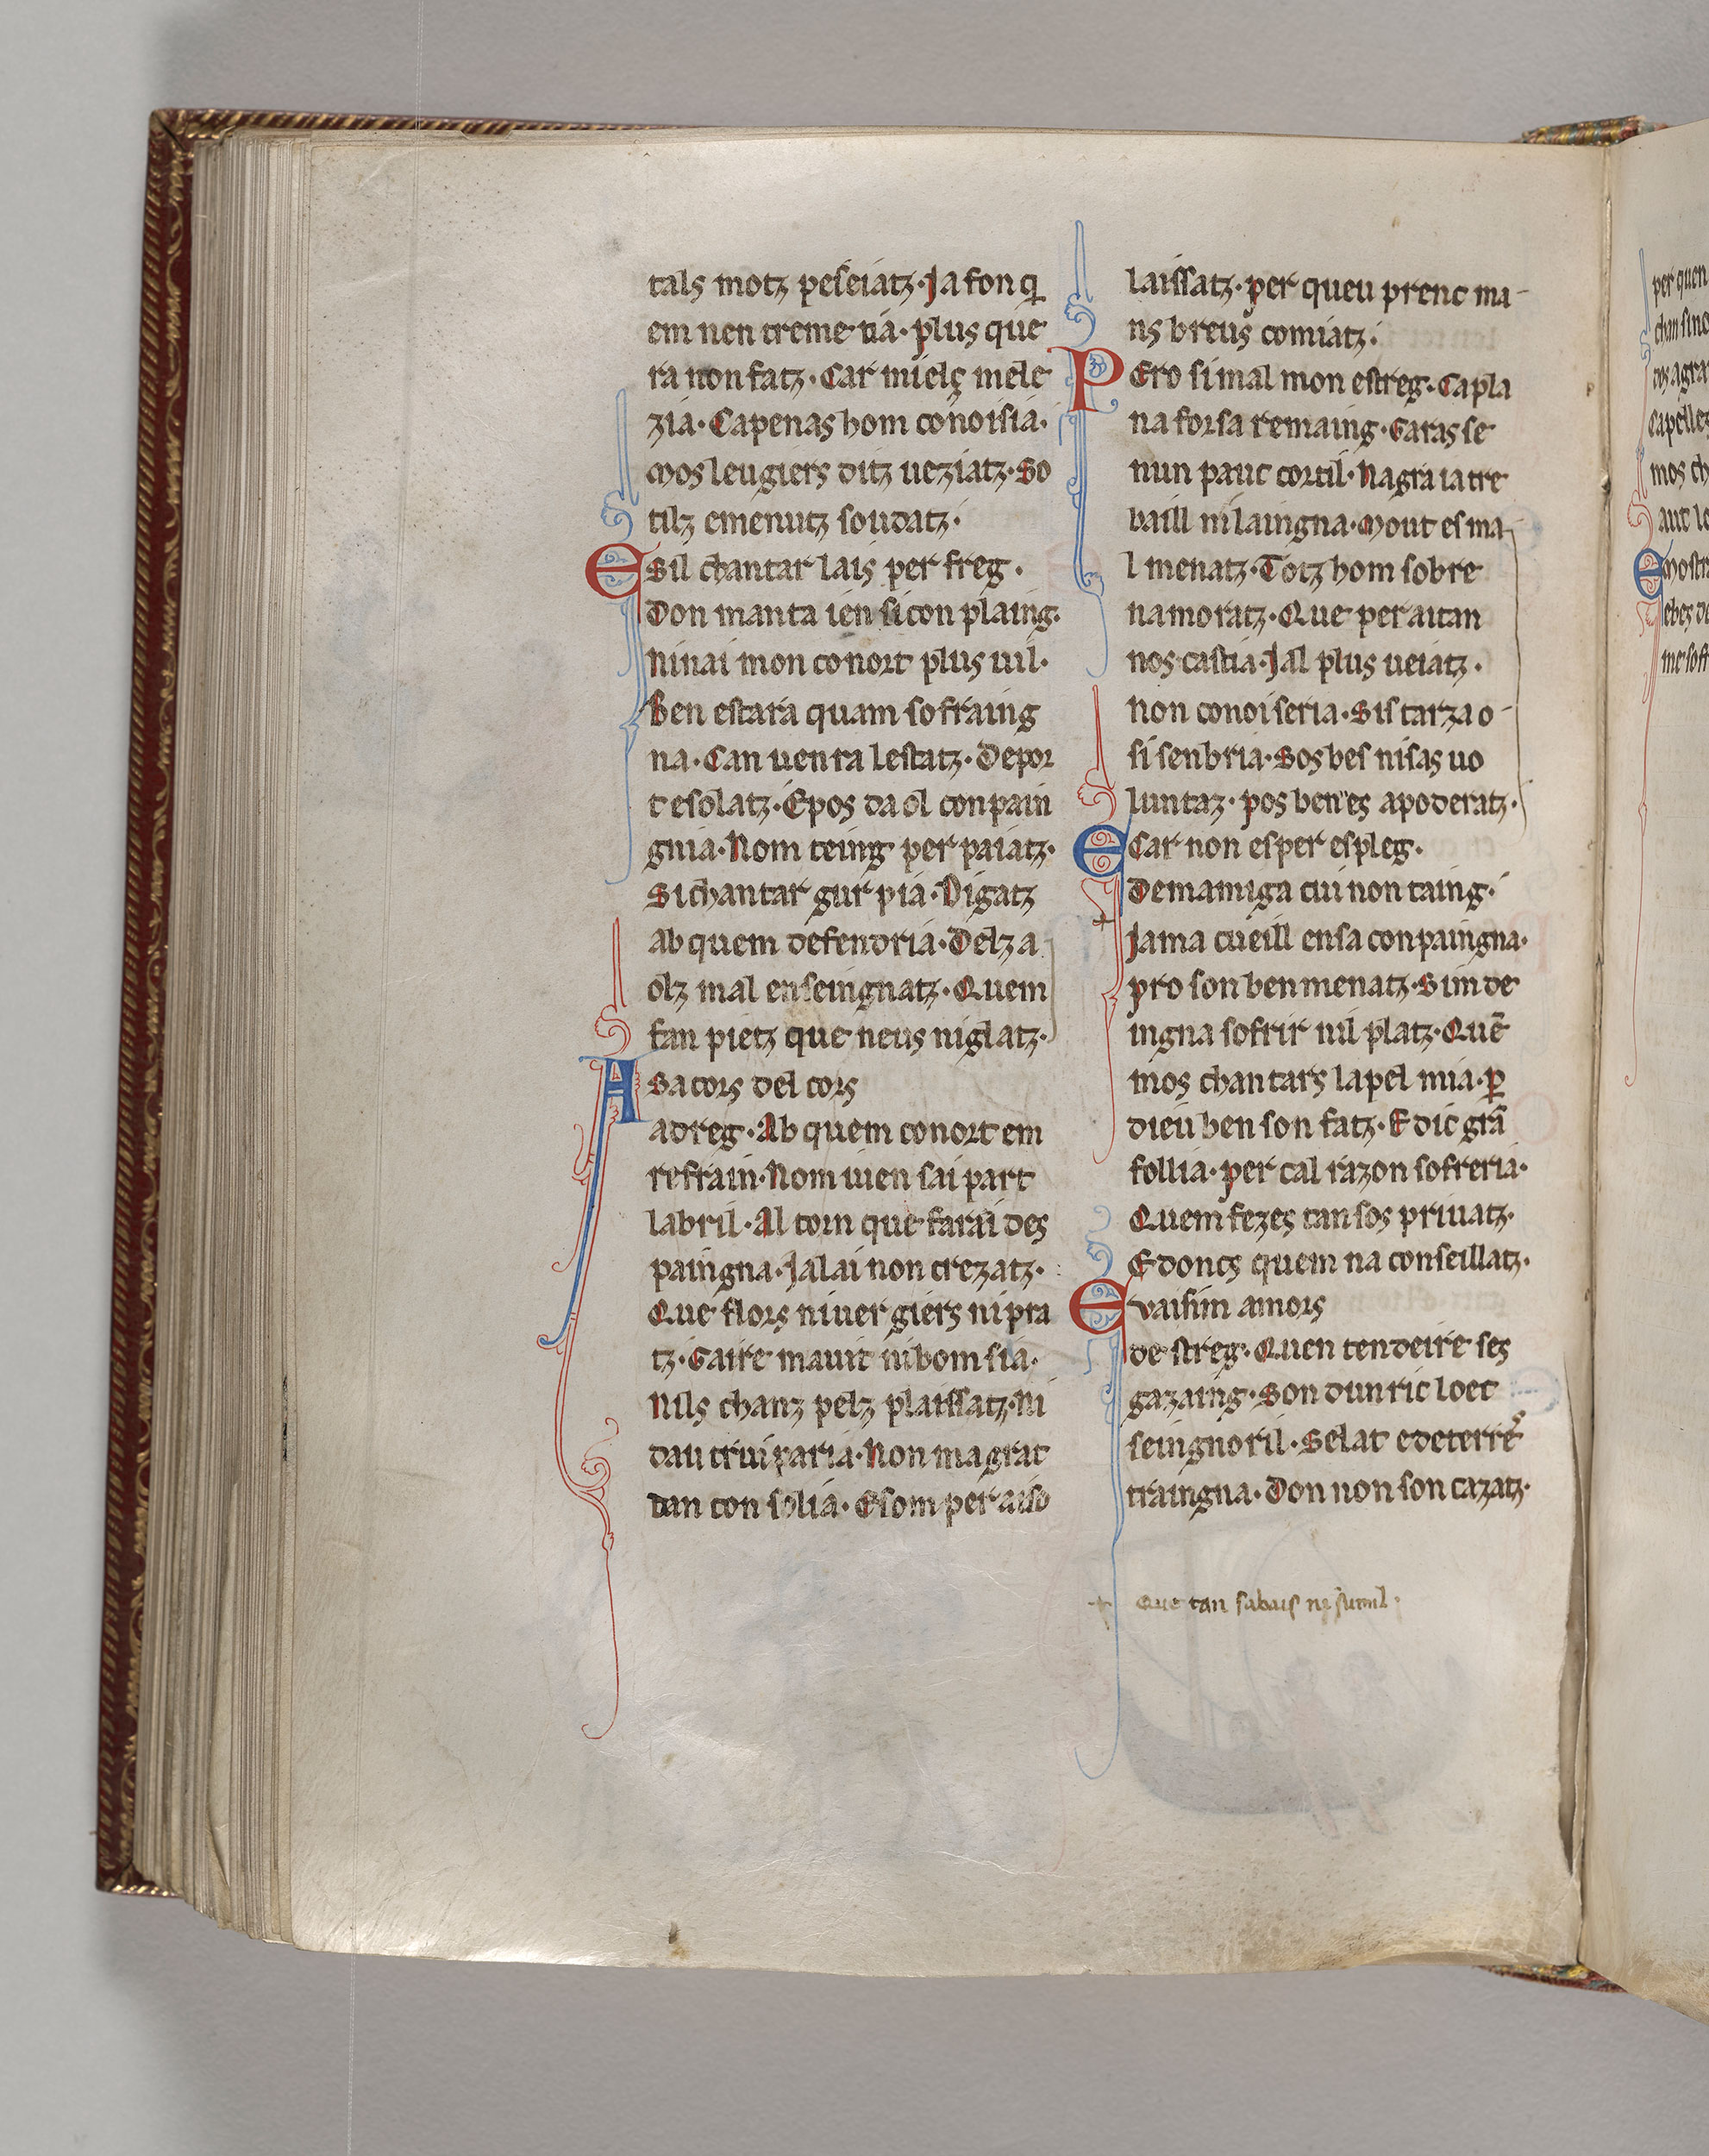 tals motz peseiatz·Ja fon q̃
em nen treme ria·plus que
ra non fatz·Car mielç mele
zia·Capenas hom conoisia·
Mos leugiers ditz ueziatz·So
tilz emenutz soudatz·
Esil chantar lais per freg·
Don manta ien si con plaing·
Ninai mon conort plus uil·
Ben estara quam sofraing
na·Can uenra lestatz·Depor
t esolatz·Epos da ol conpain
gnia·Nom teing per paiatz·
Si chantar gur pia·Digatz
ab quem defendria·Delz a
olz mal enseingnatz·Quem
fan pietz que neus niglatz·
A sa cors del cors
adreg·Ab quem conort em
refrain·Nom uien sai part
labril·Al torn que farai des
paingna·Jalai non crezatz·
Que flors niuer giers ni pra
tz·Gaire mauit ni bom sia·
Nils chanz pelz plaissatz·Ni
dau trui paria·Non magrat
dan con solia·Esom per aiso
laissatz·per queu prenc ma-
ns breus comiatz·
Pero si mal mon estreg·Capla
na forsa remaing·Garas se
nun pauc cortil·Nagra ia tre
baill ni laingna·Mout es ma
l menatz·Totz hom sobre
namoratz·Que per aitan
nos castia·Jal plus ueiatz·
Non conoiseria·Sis tarza o-
si senbria·Sos bes nisas uo
luntaz·pos ben es apoderatz·
E Car non esper espleg·
Demamiga cui non taing·
Jama cueill ensa conpaingna·
pro son ben menatz·Sim de
ingna sofrir nil platz·Quē
mos chantars lapel mia·ꝑ
dieu ben son fatz·E dic grā
follia·per cal razon sofreria·
Quem fezes tan sos priuatz·
Edoncs quem na conseillatz·
E vaisim amors
de streg·Quen tendeire ses
gazaing·Son dun ric loec
seingnoril·Selat edeterre
traingna·Don non son cazatz·
+ Que tan sabais ne sumil·
per quen